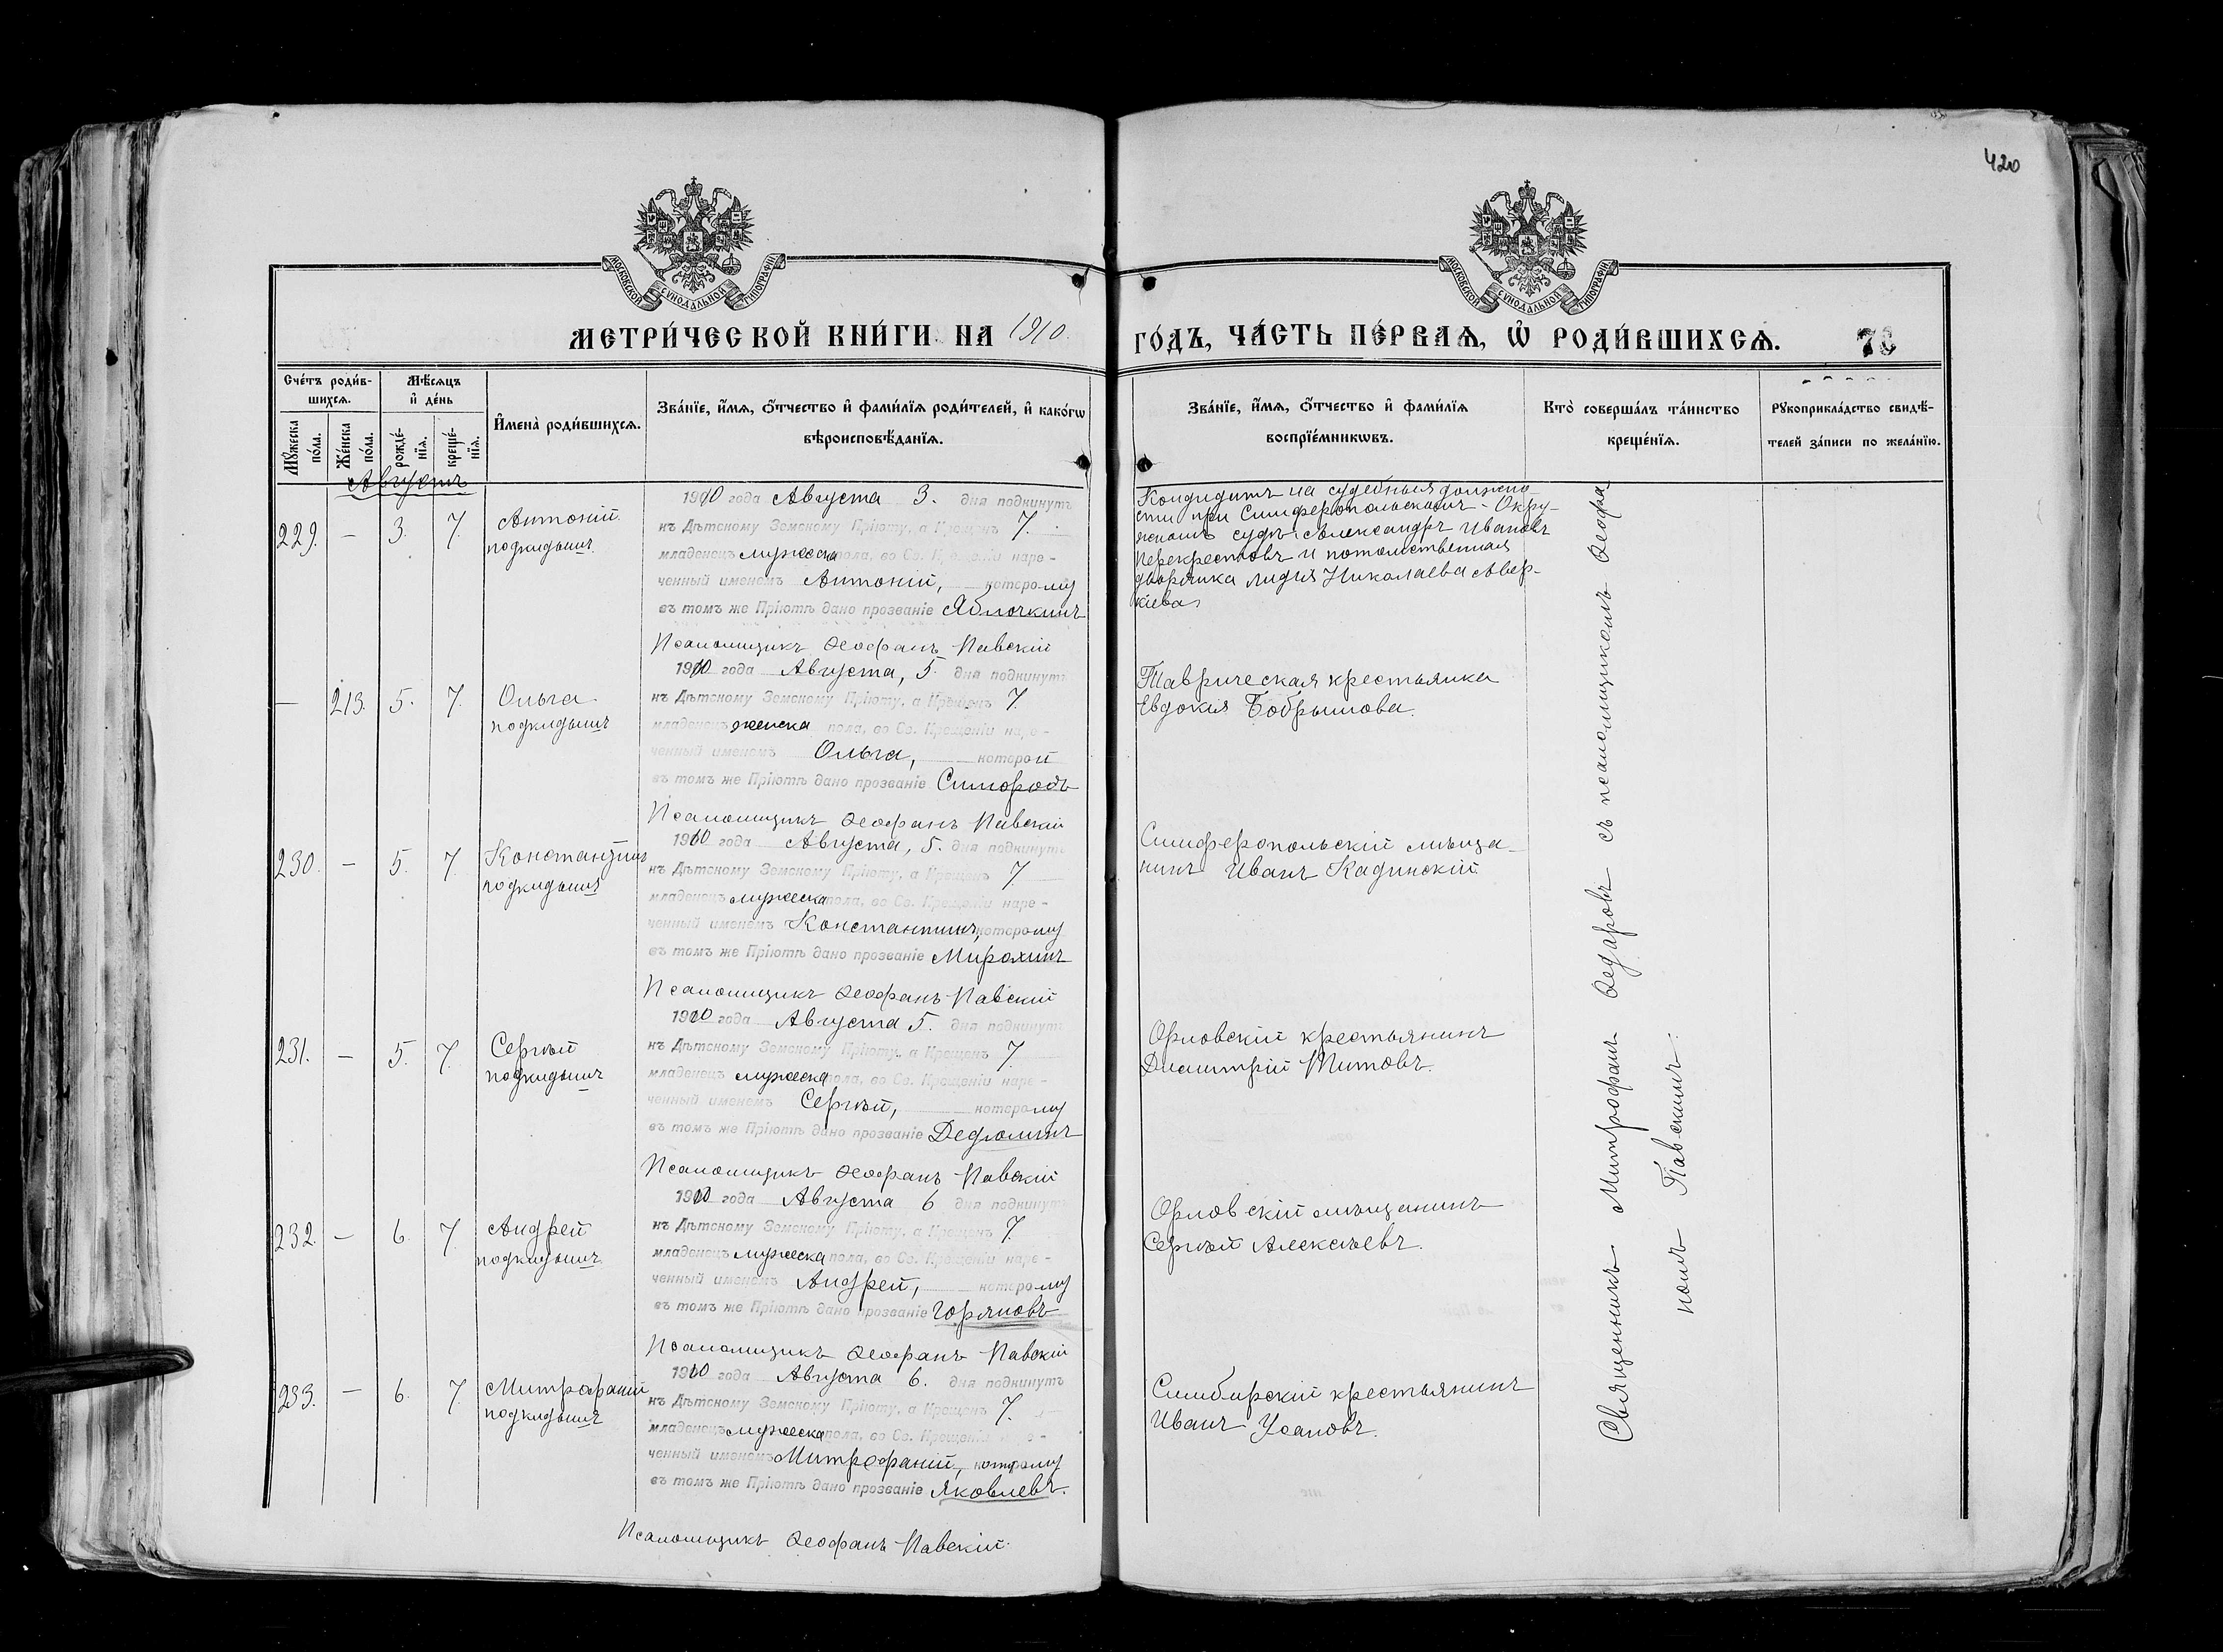 420
МОСКОВСКОЙ СУНОДАЛЬНОЙ ТИПОГРАФІИ
МОСКОВСКОЙ СУНОДАЛЬНОЙ ТИПОГРАФІИ
МЕТРИ́ЧЕСКОЙ КНИ́ГИ НА 1910
ГО́ДЪ, ЧА́СТЬ ПЕ́РВАѦ, Ѽ РОДИ́ВШИХСѦ.
Сче́тъ роди́в-
шихсѧ.
Мꙋ́жеска по́ла.
Же́нска по́ла.
Мѣ́сѧцъ
и҆ де́нь
рожде́-
нїѧ.
креще́-
нїѧ.
И҆мена̀ роди́вшихсѧ.
Зва́нїе, и҆́мѧ, о҆́тчество и҆ фами́лїѧ роди́телей, и҆ како́гѡ
вѣроисповѣ́данїѧ.
Зва́нїе, и҆́мѧ, о҆́тчество и҆ фами́лїѧ
воспрїе́мникѡвъ.
Кто̀ соверша́лъ та́инство
креще́нїѧ.
Рꙋкоприкла́дство свидѣ́-
телей за́писи по жела́нїю.
Августъ
229. — 3. 7. Антоній
подкидышъ
1910 года Августа 3. дня подкинутъ
къ Дѣтскому Земскому Пріюту, а Крещенъ 7.
младенецъ мужеска пола, во Св. Крещеніи наре-
ченный именемъ Антоній, которому
въ томъ же Пріютѣ дано прозваніе Яблочкинъ
Псаломщикъ Ѳеофанъ Павскій
Кондидатъ на судебныя должно-
сти при Симферопольскомъ Окру-
жномъ судѣ Александръ Ивановъ
Перекрестовъ и потомственная
дворянка Лидія Николаева Авер-
кіева
— 213. 5. 7. Ольга
подкидышъ
1910 года Августа, 5. дня подкинутъ
къ Дѣтскому Земскому Пріюту, а Крещенъ 7.
младенецъ женска пола, во Св. Крещеніи наре-
ченный именемъ Ольга, которой
въ томъ же Пріютѣ дано прозваніе
Псаломщикъ Ѳеофанъ Павскій
Таврическая крестьянка
Евдокія Бобрышова.
230. — 5. 7. Константинъ
подкидышъ
1910 года Августа, 5. дня подкинутъ
къ Дѣтскому Земскому Пріюту, а Крещенъ 7.
младенецъ мужеска пола, во Св. Крещеніи наре-
ченный именемъ Константинъ, которому
въ томъ же Пріютѣ дано прозваніе Мирохинъ
Псаломщикъ Ѳеофанъ Павскій
Симферопольскій мѣща-
нинъ Иванъ Кадинскій
231. — 5. 7. Сергѣй
подкидышъ
1910 года Августа 5. дня подкинутъ
къ Дѣтскому Земскому Пріюту, а Крещенъ 7.
младенецъ мужеска пола, во Св. Крещеніи наре-
ченный именемъ Сергѣй, которому
въ томъ же Пріютѣ дано прозваніе
Псаломщикъ Ѳеофанъ Павскій
Орловскій крестьянинъ
Димитрій Титовъ.
232. — 6. 7. Андрей
подкидышъ
1910 года Августа 6 дня подкинутъ
къ Дѣтскому Земскому Пріюту, а Крещенъ 7.
младенецъ мужеска пола, во Св. Крещеніи наре-
ченный именемъ Андрей, которому
въ томъ же Пріютѣ дано прозваніе Горяновъ
Псаломщикъ Ѳеофанъ Павскій
Орловскій мѣщанинъ
Сергѣй Алексѣевъ.
233. — 6. 7. Митрофаній
подкидышъ
1910 года Августа 6. дня подкинутъ
къ Дѣтскому Земскому Пріюту, а Крещенъ 7.
младенецъ мужеска пола, во Св. Крещеніи наре-
ченный именемъ Митрофаній, которому
въ томъ же Пріютѣ дано прозваніе Яковлевъ.
Псаломщикъ Ѳеофанъ Павскій.
Симбирскій крестьянинъ
Иванъ Усановъ.
Священникъ Митрофанъ съ псаломщикомъ Ѳеофа-
номъ Павскимъ.